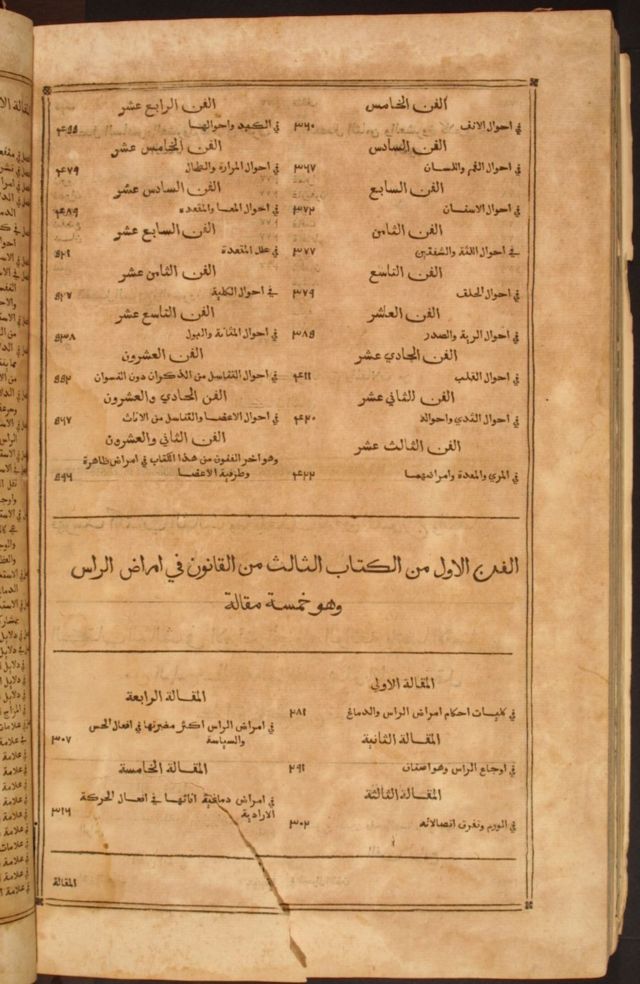 الفن الخامس
في احوال الانف ٣٦٠
الفن السادس
في احوال الفم واللسان ٣٦٧
الفن السابع
في احوال الاسنان ٣٧٢
الفن الثامن
في احوال اللثة والشفتين ٣٧٧
الفن التاسع
في احوال الحلق ٣٧٩
الفن العاشر
في احوال الرية والصدر ٣٨٩
الفن الحادي عشر
في احوال القلب ٤١١
الفن الثاني عشر
في احوال الثدي واحواله ٤٢٠
الفن الثالث عشر
في المري والمعدة وامراضهما ٤٢٢
الفن الرابع عشر
في الكبد واحوالها
الفن الخامس عشر
في احوال المرارة والطحال ٤٧٩
الفن السادس عشر
في احوال المعا والمقعدة ٤٨٩
الفن السابع عشر
في علل المقعدة ٥٢١
الفن الثامن عشر
في احوال الكلية ٥٢٧
الفن التاسع عشر
في احوال المثانة والبول ٥٣٨
الفن العشرون
في احوال التناسل من الذكران دون النسوان ٥٥٢
الفن الحادي والعشرون
في احوال الاعضا والتناسل من الاناث ٥٦٧
الفن الثاني والعشرون
وهو اخر الفنون من هذا الكتاب في امراض ظاهرة
وطرفية الاعضا ٥٩٦
الفن الاول من الكتاب الثالث من القانون في امراض الراس
وهو خمسة مقالة
المقالة الاولي
في كليات احكام امراض الراس والدماغ ٢٨١
المقالة الثانية
في اوجاع الراس وهو اصناف ٢٩٢
المقالة الثالثة
في الورم وتفرق اتصالاته ٣٠٢
المقالة الرابعة
في امراض الراس اكثر مضرتها في افعال الحس
والسياسة ٣٠٧
المقالة الخامسة
في امراض دماغية افاتها في افعال الحركة
الارادية ٣١٦
المقالة